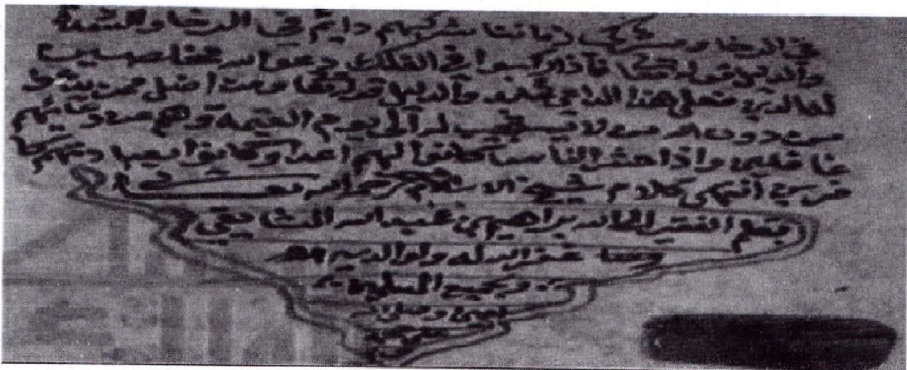 في الرخا ومشركي زماننا شركهم دايم في الرخا والشدة
والدليل قوله تعا فاذا ركبوا في الفلك دعوا الله مخلصين
له الدين فعلى هذا الداعي عابد والدليل قوله تعا ومن اضل ممن يدعو
من دون الله من لا يستجيب له الى يوم القيمة وهم عن دعائهم
غافلين واذا حشر الناس كانوا لهم اعداء وكانوا بعبادتهم كا
فرين انتهى كلام شيخ الاسلام رحمه الله تعا
بقلم الفقير الى الله ابراهيم بن عبد الله الشافعي
غفر الله له ولوالديه
وجميع المسلمين